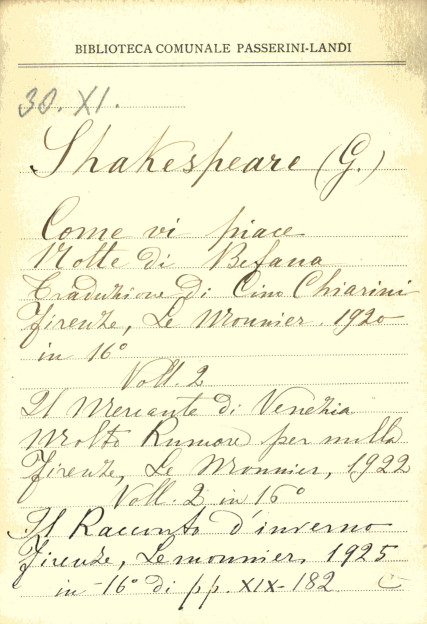 BIBLIOTECA COMUNALE PASSERINI-LANDI
30. XI.
Shakespeare (G.)
Come vi piace
Notte di Befana
Traduzione di Cino Chiarini
Firenze, Le Monnier. 1920
in 16°
Voll. 2
Il Mercante di Venezia
Molto Rumore per nulla
Firenze, Le Monnier, 1922
Voll. 2 in 16°
Il Racconto d'inverno
Firenze, Lemonnier, 1925
in-16° di pp. XIX-182